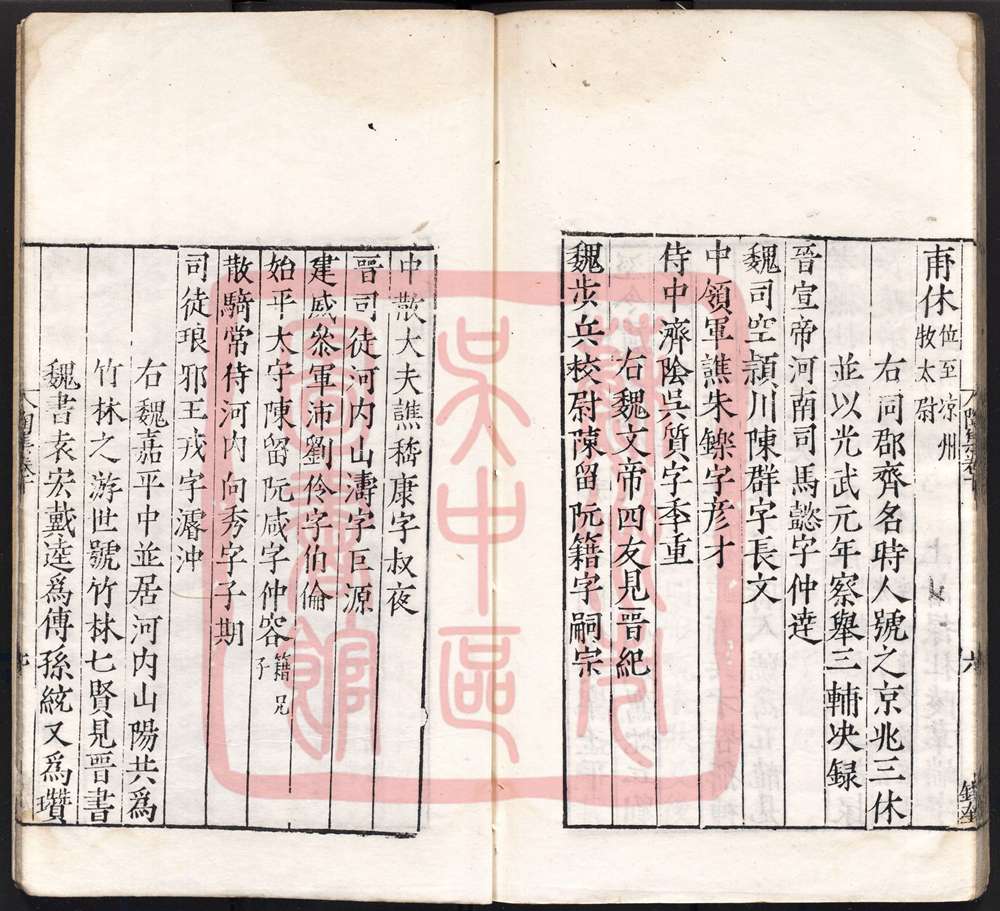 甫休位至凉州牧太尉
右同郡齊名時人號之京兆三休
並以光武元年察舉三輔决録
晉宣帝河南司馬懿字仲達
魏司空潁川陳群字長文
中領軍譙朱鑠字彥才
侍中濟陰吳質字季重
右魏文帝四友見晉紀
魏步兵校尉陳留阮籍字嗣宗
六
中散大夫譙嵇康字叔夜
晉司徒河内山濤字巨源
建威叅軍沛劉伶字伯倫
始平太守陳留阮咸字仲容籍兄子
散騎常侍河内向秀字子期
司徒琅邪王戎字濬沖
右魏嘉平中並居河内山陽共爲
竹林之游世號竹林七賢見晉書
魏書袁宏戴逵爲傳孫統又爲瓚
吳中區
圖書館